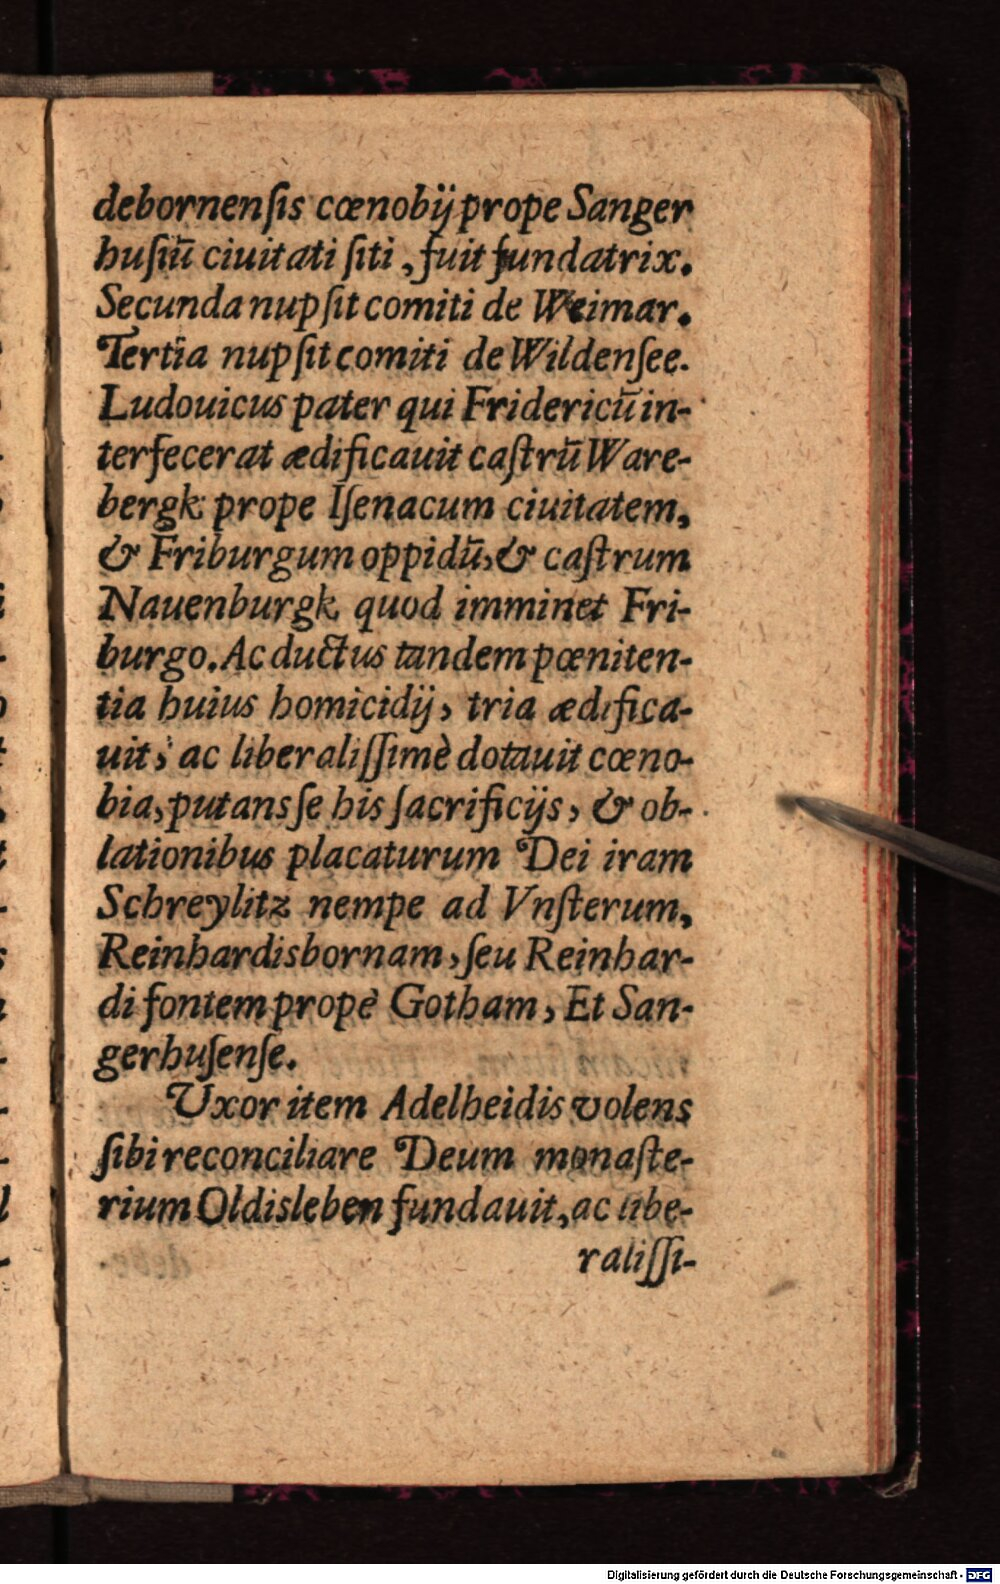 debornenſis cœnobij prope Sanger
huſiū ciuitati ſiti, fuit fundatrix.
Secunda nupſit comiti de Weimar.
Tertia nupſit comiti de Wildenſee.
Ludouicus pater qui Fridericū in-
terfecerat ædificauit caſtrū Ware-
bergk prope Iſenacum ciuitatem,
& Friburgum oppidū, & caſtrum
Nauenburgk quod imminet Fri-
burgo. Ac ductus tandem pœniten-
tia huius homicidij, tria ædifica-
uit, ac liberaliſſimè dotauit cœno-
bia, putans ſe his ſacrificijs, & ob-
lationibus placaturum Dei iram
Schreylitz nempe ad Vnſterum,
Reinhardisbornam, ſeu Reinhar-
di fontem propè Gotham, Et San-
gerhuſenſe.
Uxor item Adelheidis volens
ſibi reconciliare Deum monaſte-
rium Oldisleben fundauit, ac libe-
raliſſi-
Digitalisierung gefördert durch die Deutsche Forschungsgemeinschaft - DFG